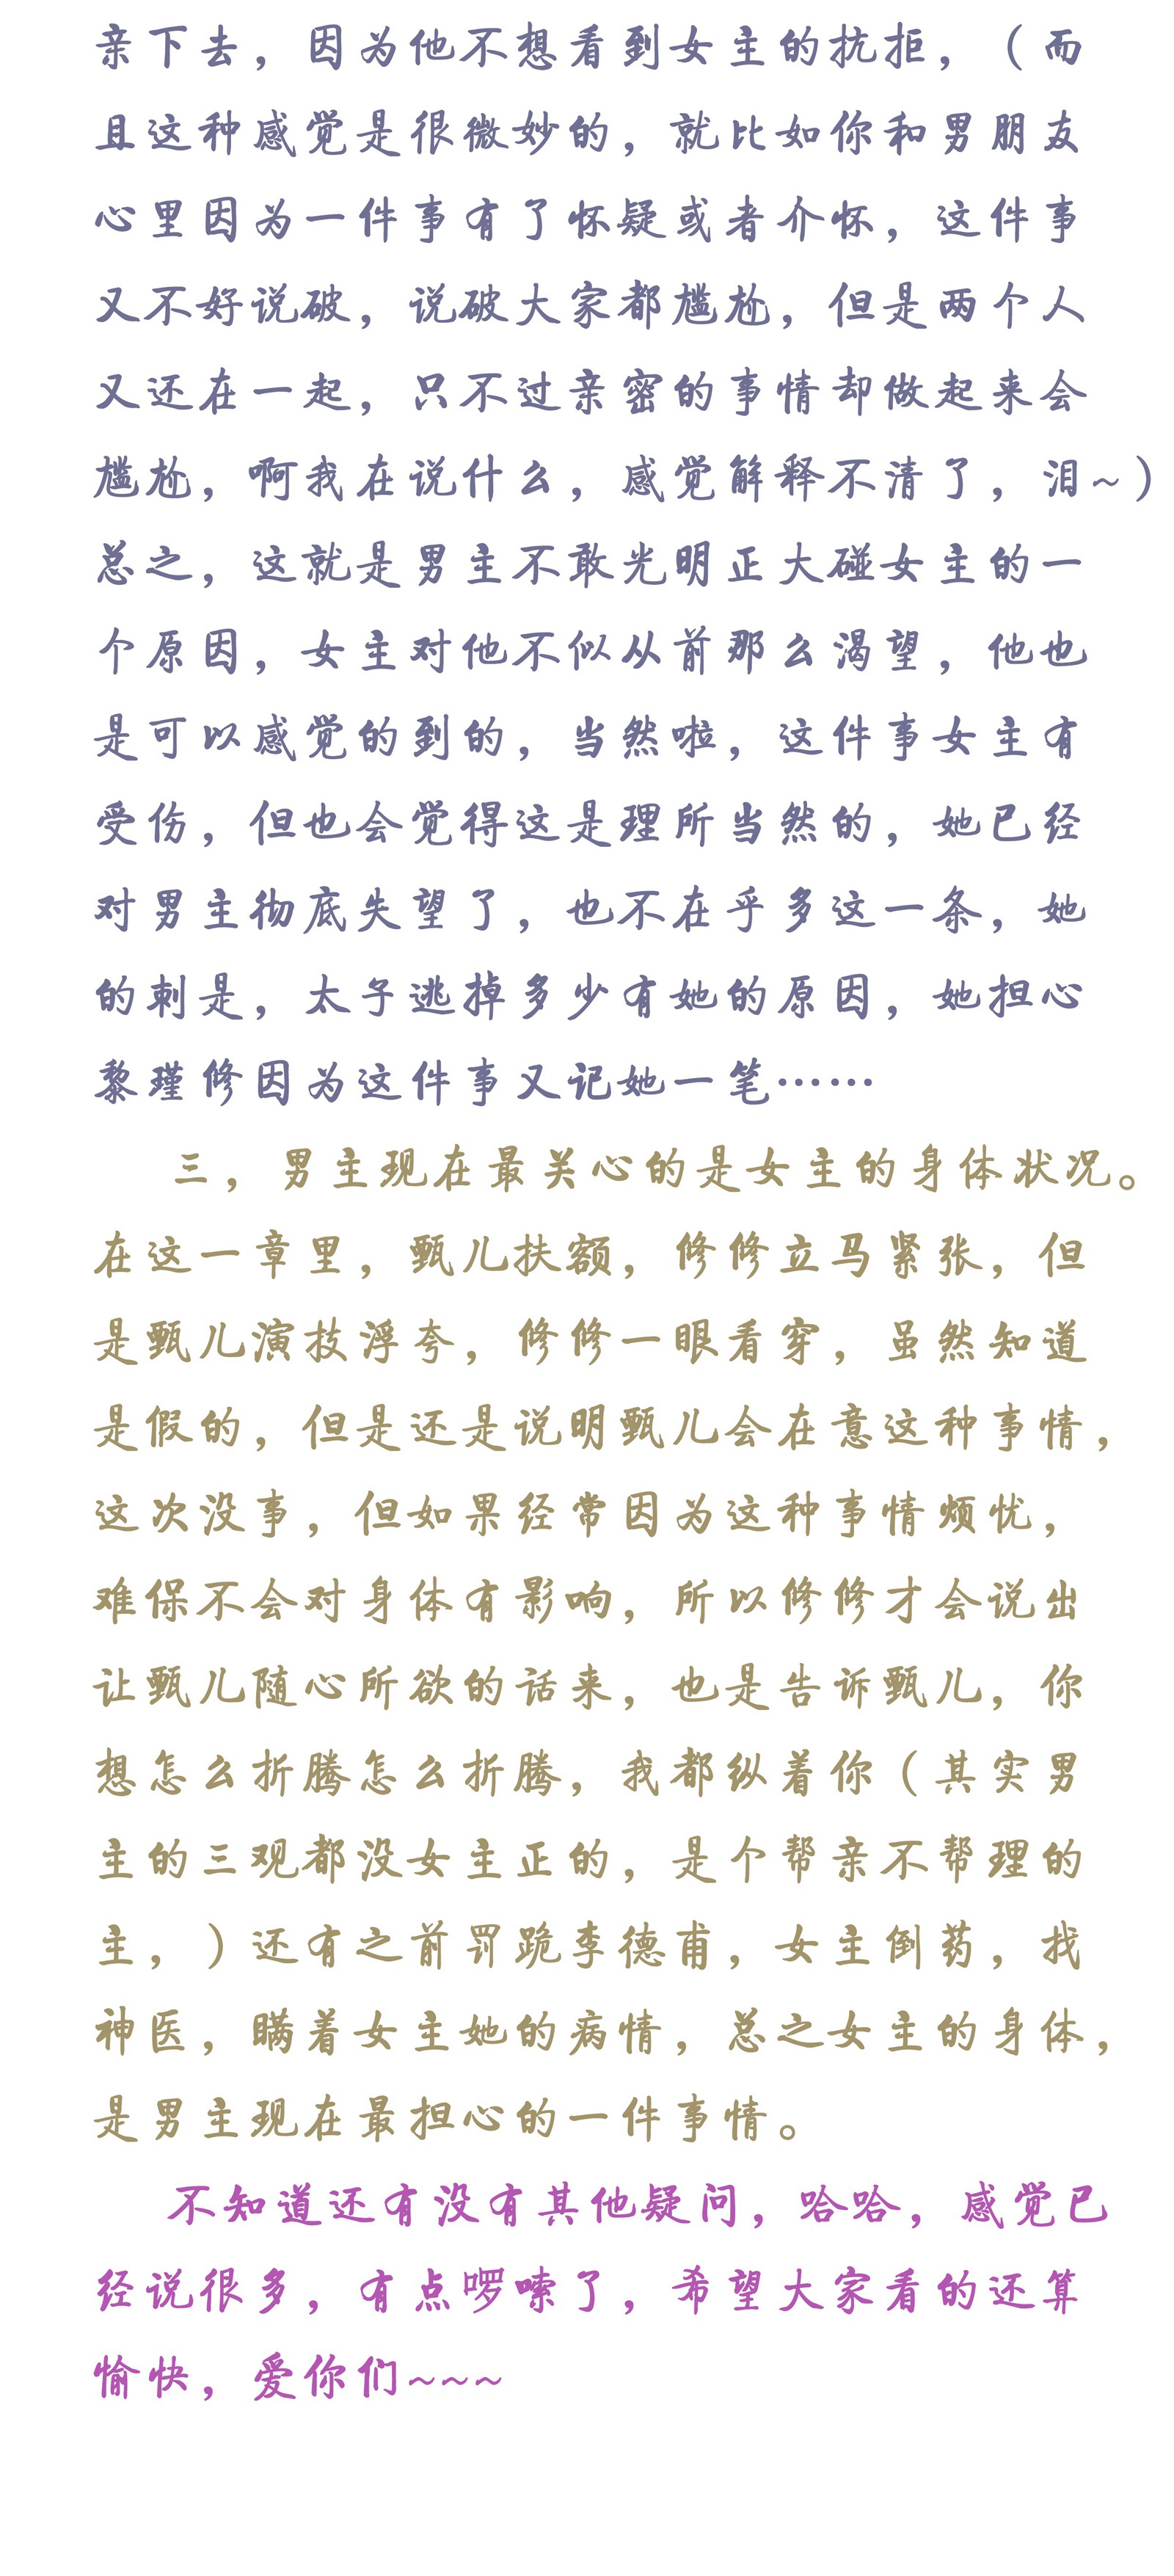 亲下去，因为他不想看到女主的抗拒，（而
且这种感觉是很微妙的，就比如你和男朋友
心里因为一件事有了怀疑或者介怀，这件事
又不好说破，说破大家都尴尬，但是两个人
又还在一起，只不过亲密的事情却做起来会
尴尬，啊我在说什么，感觉解释不清了，泪~）
总之，这就是男主不敢光明正大碰女主的一
个原因，女主对他不似从前那么渴望，他也
是可以感觉的到的，当然啦，这件事女主有
受伤，但也会觉得这是理所当然的，她已经
对男主彻底失望了，也不在乎多这一条，她
的刺是，太子逃掉多少有她的原因，她担心
黎瑾修因为这件事又记她一笔……
三，男主现在最关心的是女主的身体状况。
在这一章里，甄儿扶额，修修立马紧张，但
是甄儿演技浮夸，修修一眼看穿，虽然知道
是假的，但是还是说明甄儿会在意这种事情，
这次没事，但如果经常因为这种事情烦忧，
难保不会对身体有影响，所以修修才会说出
让甄儿随心所欲的话来，也是告诉甄儿，你
想怎么折腾怎么折腾，我都纵着你（其实男
主的三观都没女主正的，是个帮亲不帮理的
主，）还有之前罚跪李德甫，女主倒药，找
神医，瞒着女主她的病情，总之女主的身体，
是男主现在最担心的一件事情。
不知道还有没有其他疑问，哈哈，感觉已
经说很多，有点啰嗦了，希望大家看的还算
愉快，爱你们~~~